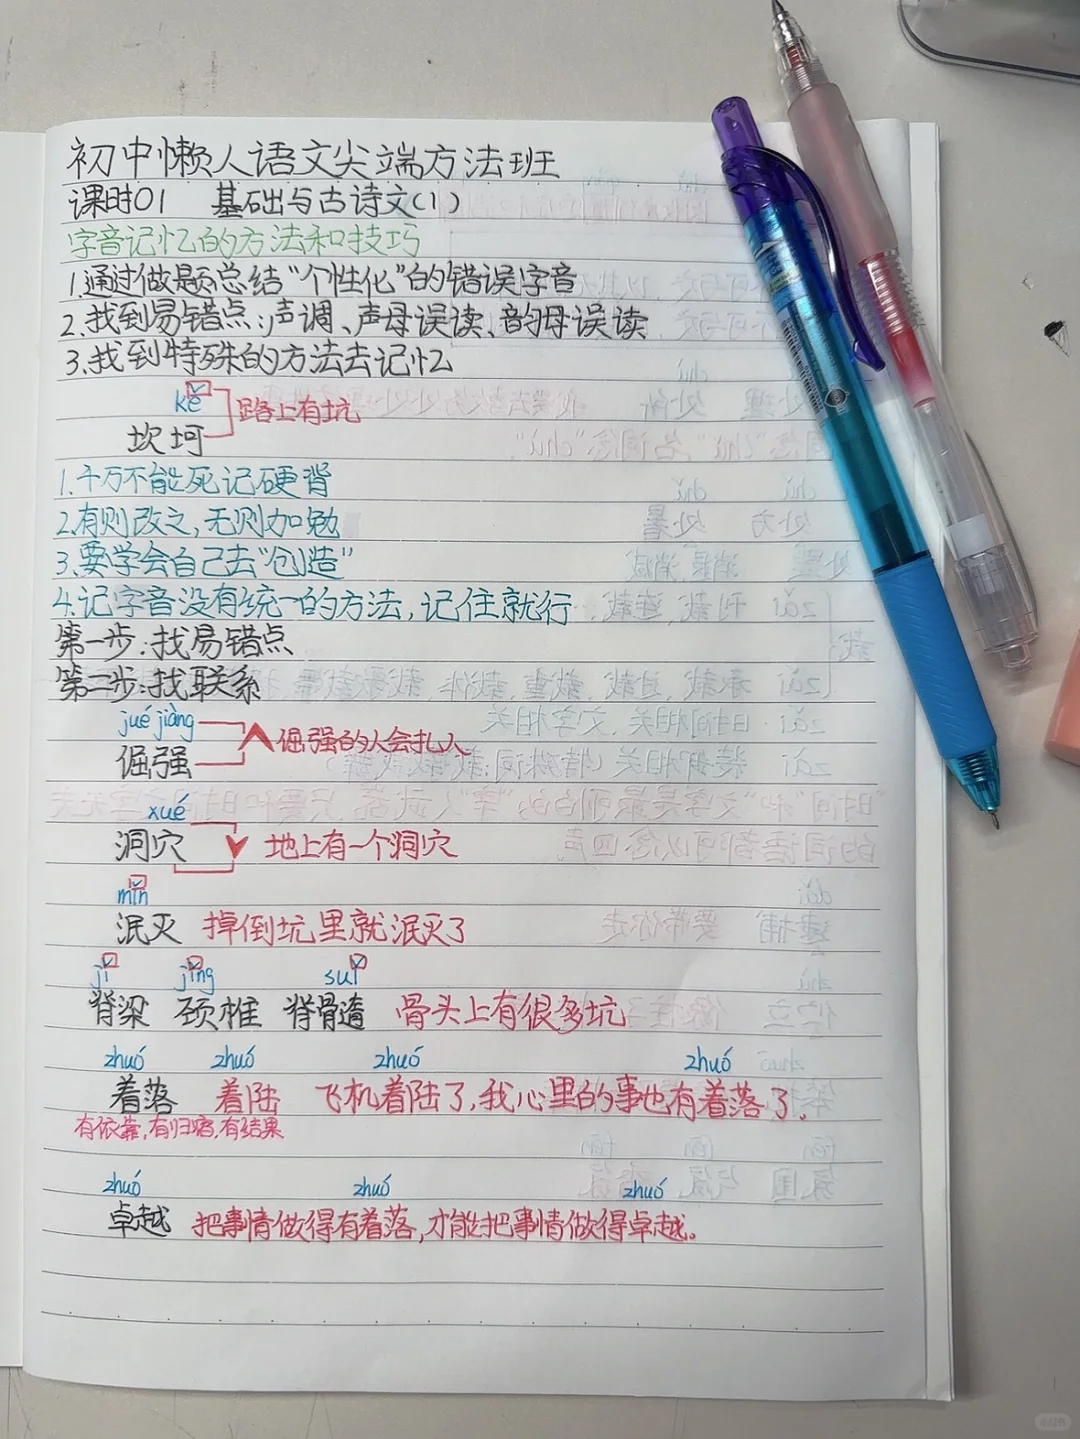 初中懒人语文尖端方法班
课时01 基础与古诗文(1)
字音记忆的方法和技巧
1.通过做题总结“个性化”的错误字音
2.找到易错点:声调、声母误读、韵母误读
3.找到特殊的方法去记忆
kě
坎坷 路上有坑
1.千万不能死记硬背
2.有则改之,无则加勉
3.要学会自己去“创造”
4.记字音没有统一的方法,记住就行
第一步:找易错点
第二步:找联系
jué jiàng
倔强 倔强的人会扎人
xué
洞穴 地上有一个洞穴
mǐn
泯灭 掉倒坑里就泯灭了
jǐ jǐng suǐ
脊梁 颈椎 脊髓 骨头上有很多坑
zhuó zhuó zhuó zhuó
着落 着陆 飞机着陆了,我心里的事也有着落了。
有依靠,有归宿,有结果
zhuó zhuó zhuó
卓越 把事情做得有着落,才能把事情做得卓越。